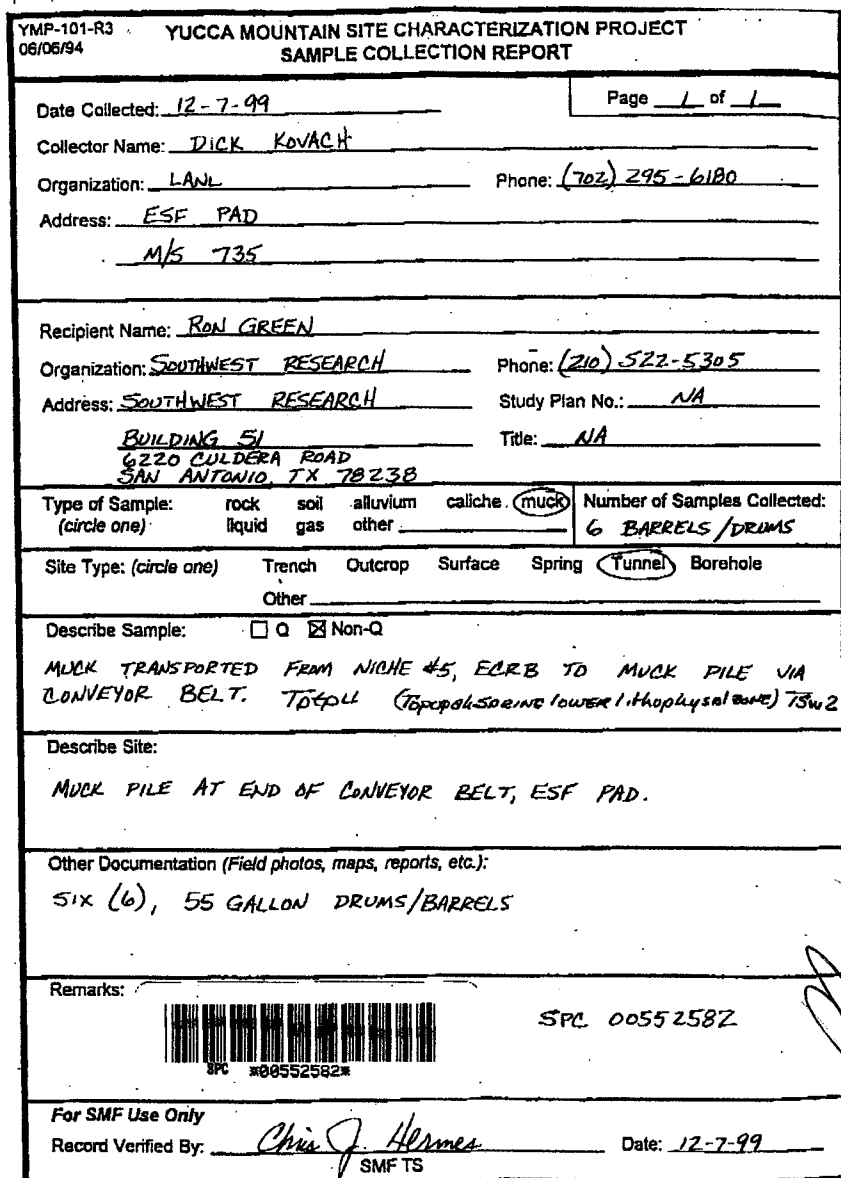 YMP-101-R3 YUCCA MOUNTAIN SITE CHARACTERIZATION PROJECT
06/06/94 SAMPLE COLLECTION REPORT
Page 1 of 1
Date Collected: 12-7-99
Collector Name: DICK KOVACH
Organization: LANL Phone: (702) 295-6180
Address: ESF PAD
M/S 735
Recipient Name: RON GREEN
Organization: SOUTHWEST RESEARCH Phone: (210) 522-5305
Address: SOUTHWEST RESEARCH Study Plan No.: NA
BUILDING 51 Title: NA
6220 CULDERA ROAD
SAN ANTONIO, TX 78238
Type of Sample: rock soil alluvium caliche muck Number of Samples Collected:
(circle one) liquid gas other 6 BARRELS/DRUMS
Site Type: (circle one) Trench Outcrop Surface Spring Tunnel Borehole
Other
Describe Sample: Q Non-Q
MUCK TRANSPORTED FROM NICHE #5, ECRB TO MUCK PILE VIA
CONVEYOR BELT. (Topopah SPRING lower lithophysal ZONE) TSw2
Describe Site:
MUCK PILE AT END OF CONVEYOR BELT, ESF PAD.
Other Documentation (Field photos, maps, reports, etc.):
SIX (6), 55 GALLON DRUMS/BARRELS
Remarks:
SPC 00552582
SPC *00552582*
For SMF Use Only
Record Verified By: Chris J. Hermes Date: 12-7-99
SMF TS